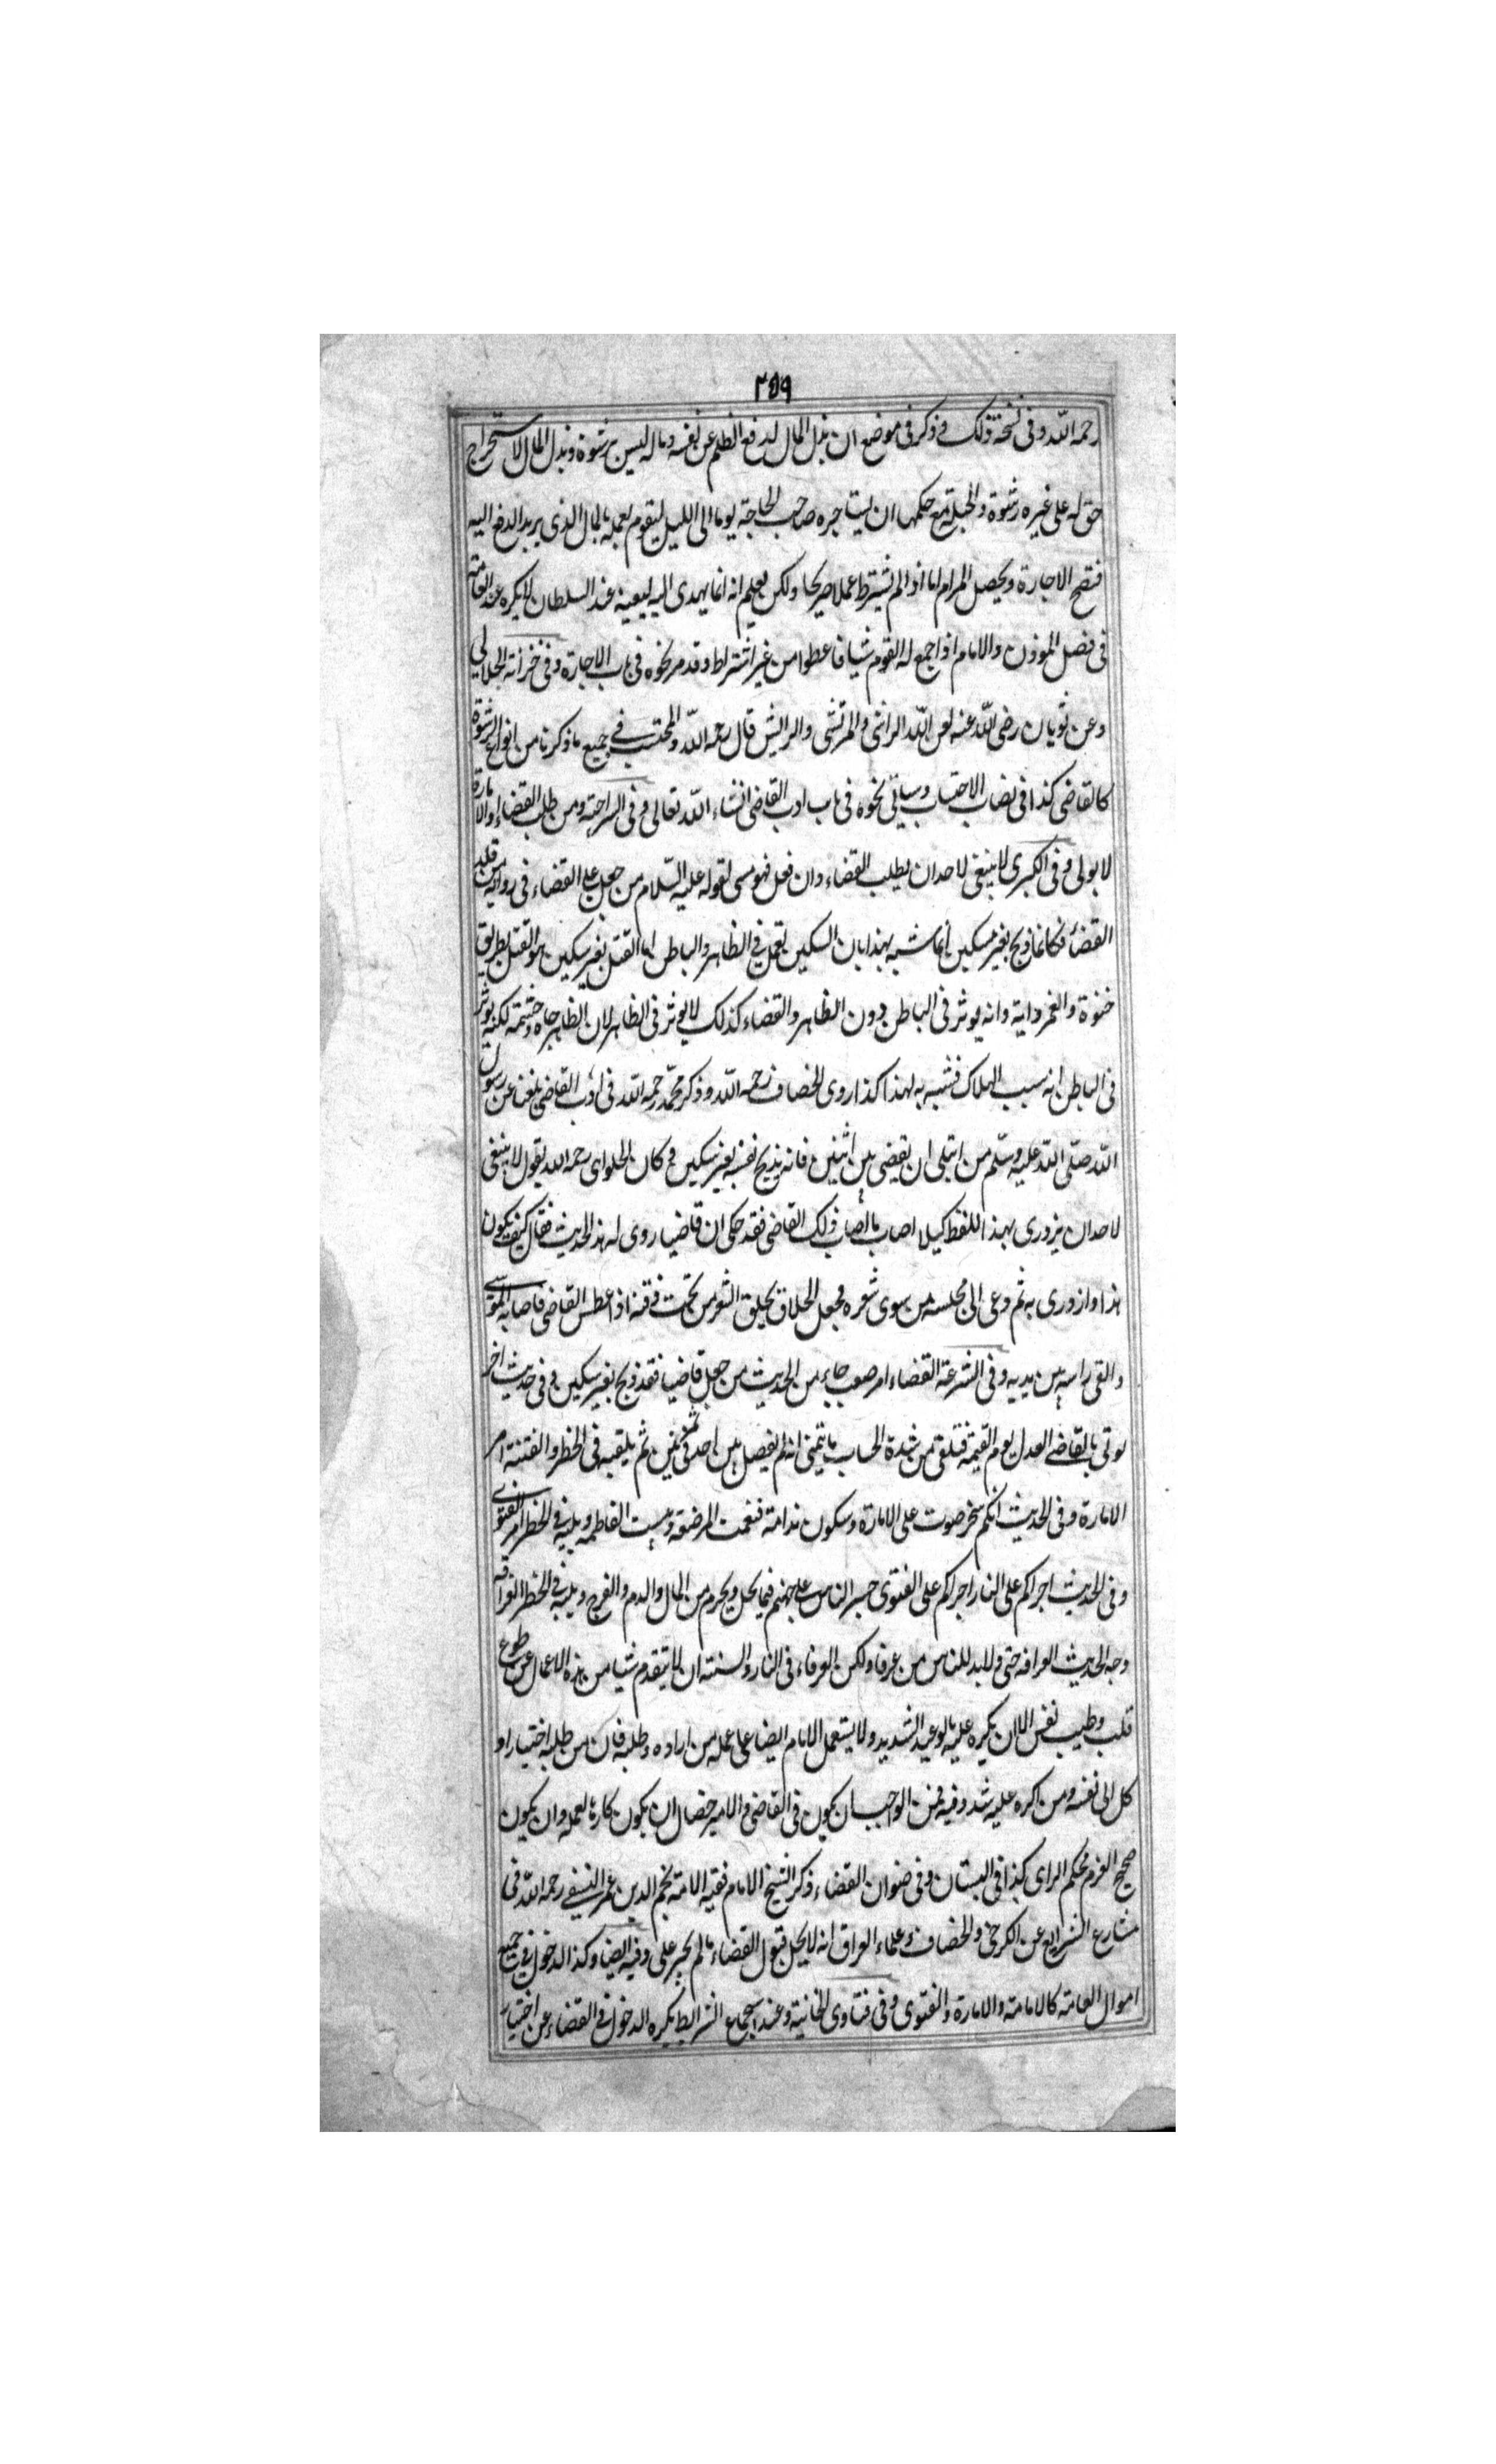 ٣٥٩
رحمه الله وفى نسخة ذلك و ذكر فى موضع ان بذل المال لدفع الظلم عن نفسه وماله ليس برشوة وبذل المال لاستخراج
حق له على غيره رشوة والحيلة مع حكمها ان يستاجره صاحب الحاجة يوما الى الليل ليقوم بعمله بالمال الذى يريد الدفع اليه
فتصح الاجارة ويحصل المرام اما اذا لم يشترط عملا صريحا ولكن يعلم انه انما يهدى اليه ليعينه عند السلطان لا يكره عند العامة
فى فصل الموذن والامام اذا جمع له القوم شيا فاعطوا من غير اشتراط وقد مر نحوه فى باب الاجارة وفى خزانة الجلالي
وعن ثوبان رضى الله عنه لعن الله الراشى والمرتشى والرايش قال رحمه الله والمحتسب فى جميع ما ذكرنا من انواع الرشوة
كالقاضى كذا فى نصاب الاحتساب وسياتى نحوه فى باب ادب القاضى انشاء الله تعالى وفى السراجية ومن طلب القضاء والامارة
لا يولى وفى الكبرى لا ينبغى لاحد ان يطلب القضاء وان فعل فهو مسى لقوله عليه السلام من جعل على القضاء فى رواية من قلد
القضاء فكانما ذبح بغير سكين انما شبه بهذا بان السكين تعمل فى الظاهر والباطن اما القتل بغير سكين هو القتل بطريق
خنوة والغم دابة وانه يوثر فى الباطن دون الظاهر والقضاء كذلك لا يوثر فى الظاهر لان الظاهر جاه وحشمة لكنه يوثر
فى الباطن انه سبب الهلاك فشبه به لهذا كذا روى الخصاف رحمه الله و ذكر محمد رحمه الله فى ادب القاضى بلغنا عن رسول
الله صلى الله عليه وسلم من ابتلى ان يقضى بين اثنين فانه يذبح نفسه بغير سكين و كان الحلواى رحمه الله يقول لا ينبغى
لاحد ان يزورى بهذا اللفظ كيلا اصاب ما اصاب ذلك القاضى فقد حكى ان قاضيا روى له هذا الحديث فقال كيف يكون
هذا وازورى به ثم دعى الى مجلسه من يسوى شعره فجعل الحلاق يحلق الشعر من تحت ذقنه اذا عطس القاضى فاصابه الموسى
والقى راسه بين يديه وفى الشرعة القضاء امر صعب جاء من الحديث من جعل قاضيا فقد ذبح بغير سكين و فى حديث اخر
يوتى بالقاضى العدل يوم القيمة فتلقى من شدة الحساب ما يتمنى انه لم يفصل بين احد فى تمرتين ثم يلقبه فى الخطر والفتنة امر
الامارة وفى الحديث انكم ستحرصون على الامارة وستكون ندامة فنعمت المرضعة وبئست الفاطمه ويليه فى الخطر امر الفتوى
وفى الحديث اجراكم على النار اجراكم على الفتوى جسر الناس على جهنم فيما يحل ويحرم من المال والدم والفرج ويليه فى الخطر العرافة
وجه الحديث العرافه حق ولا بد للناس من عرفا ولكن العرفاء فى النار والسنة ان لا يتقدم شيا من هذه الاعمال عن طوع
قلب وطيب نفس الا ان يكره عليه بالوعيد الشديد ولا يستعمل الامام ايضا على عمله من اراده وطلبه فان من طلبه اختيارا و
كل الى نفسه ومن اكره عليه شدد فيه فمن الواجب ان يكون فى القاضى والامير خصال ان يكون كارها لعمله وان يكون
صحيح العزم محكم الراى كذا فى البستان وفى صنوان القضاء ذكر الشيخ الامام فقيه الامة نجم الدين عمر النسفى رحمه الله فى
مشارع الشرايع عن الكرخى والخصاف وعلماء العراق انه لا يحل قبول القضاء ما لم يجبر على وفيه ايضا وكذا الدخول فى جميع
اموال العامة كالامامة والامارة والفتوى و فى فتاوى الخانية وعند اجتماع الشرايط يكره الدخول فى القضاء عن اختيار